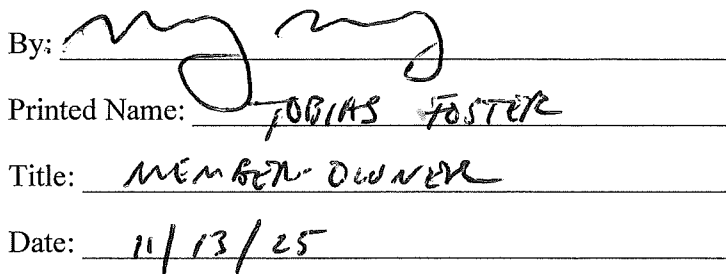 By:
Printed Name: TOBIAS FOSTER
Title: MEMBER-OWNER
Date: 11/13/25